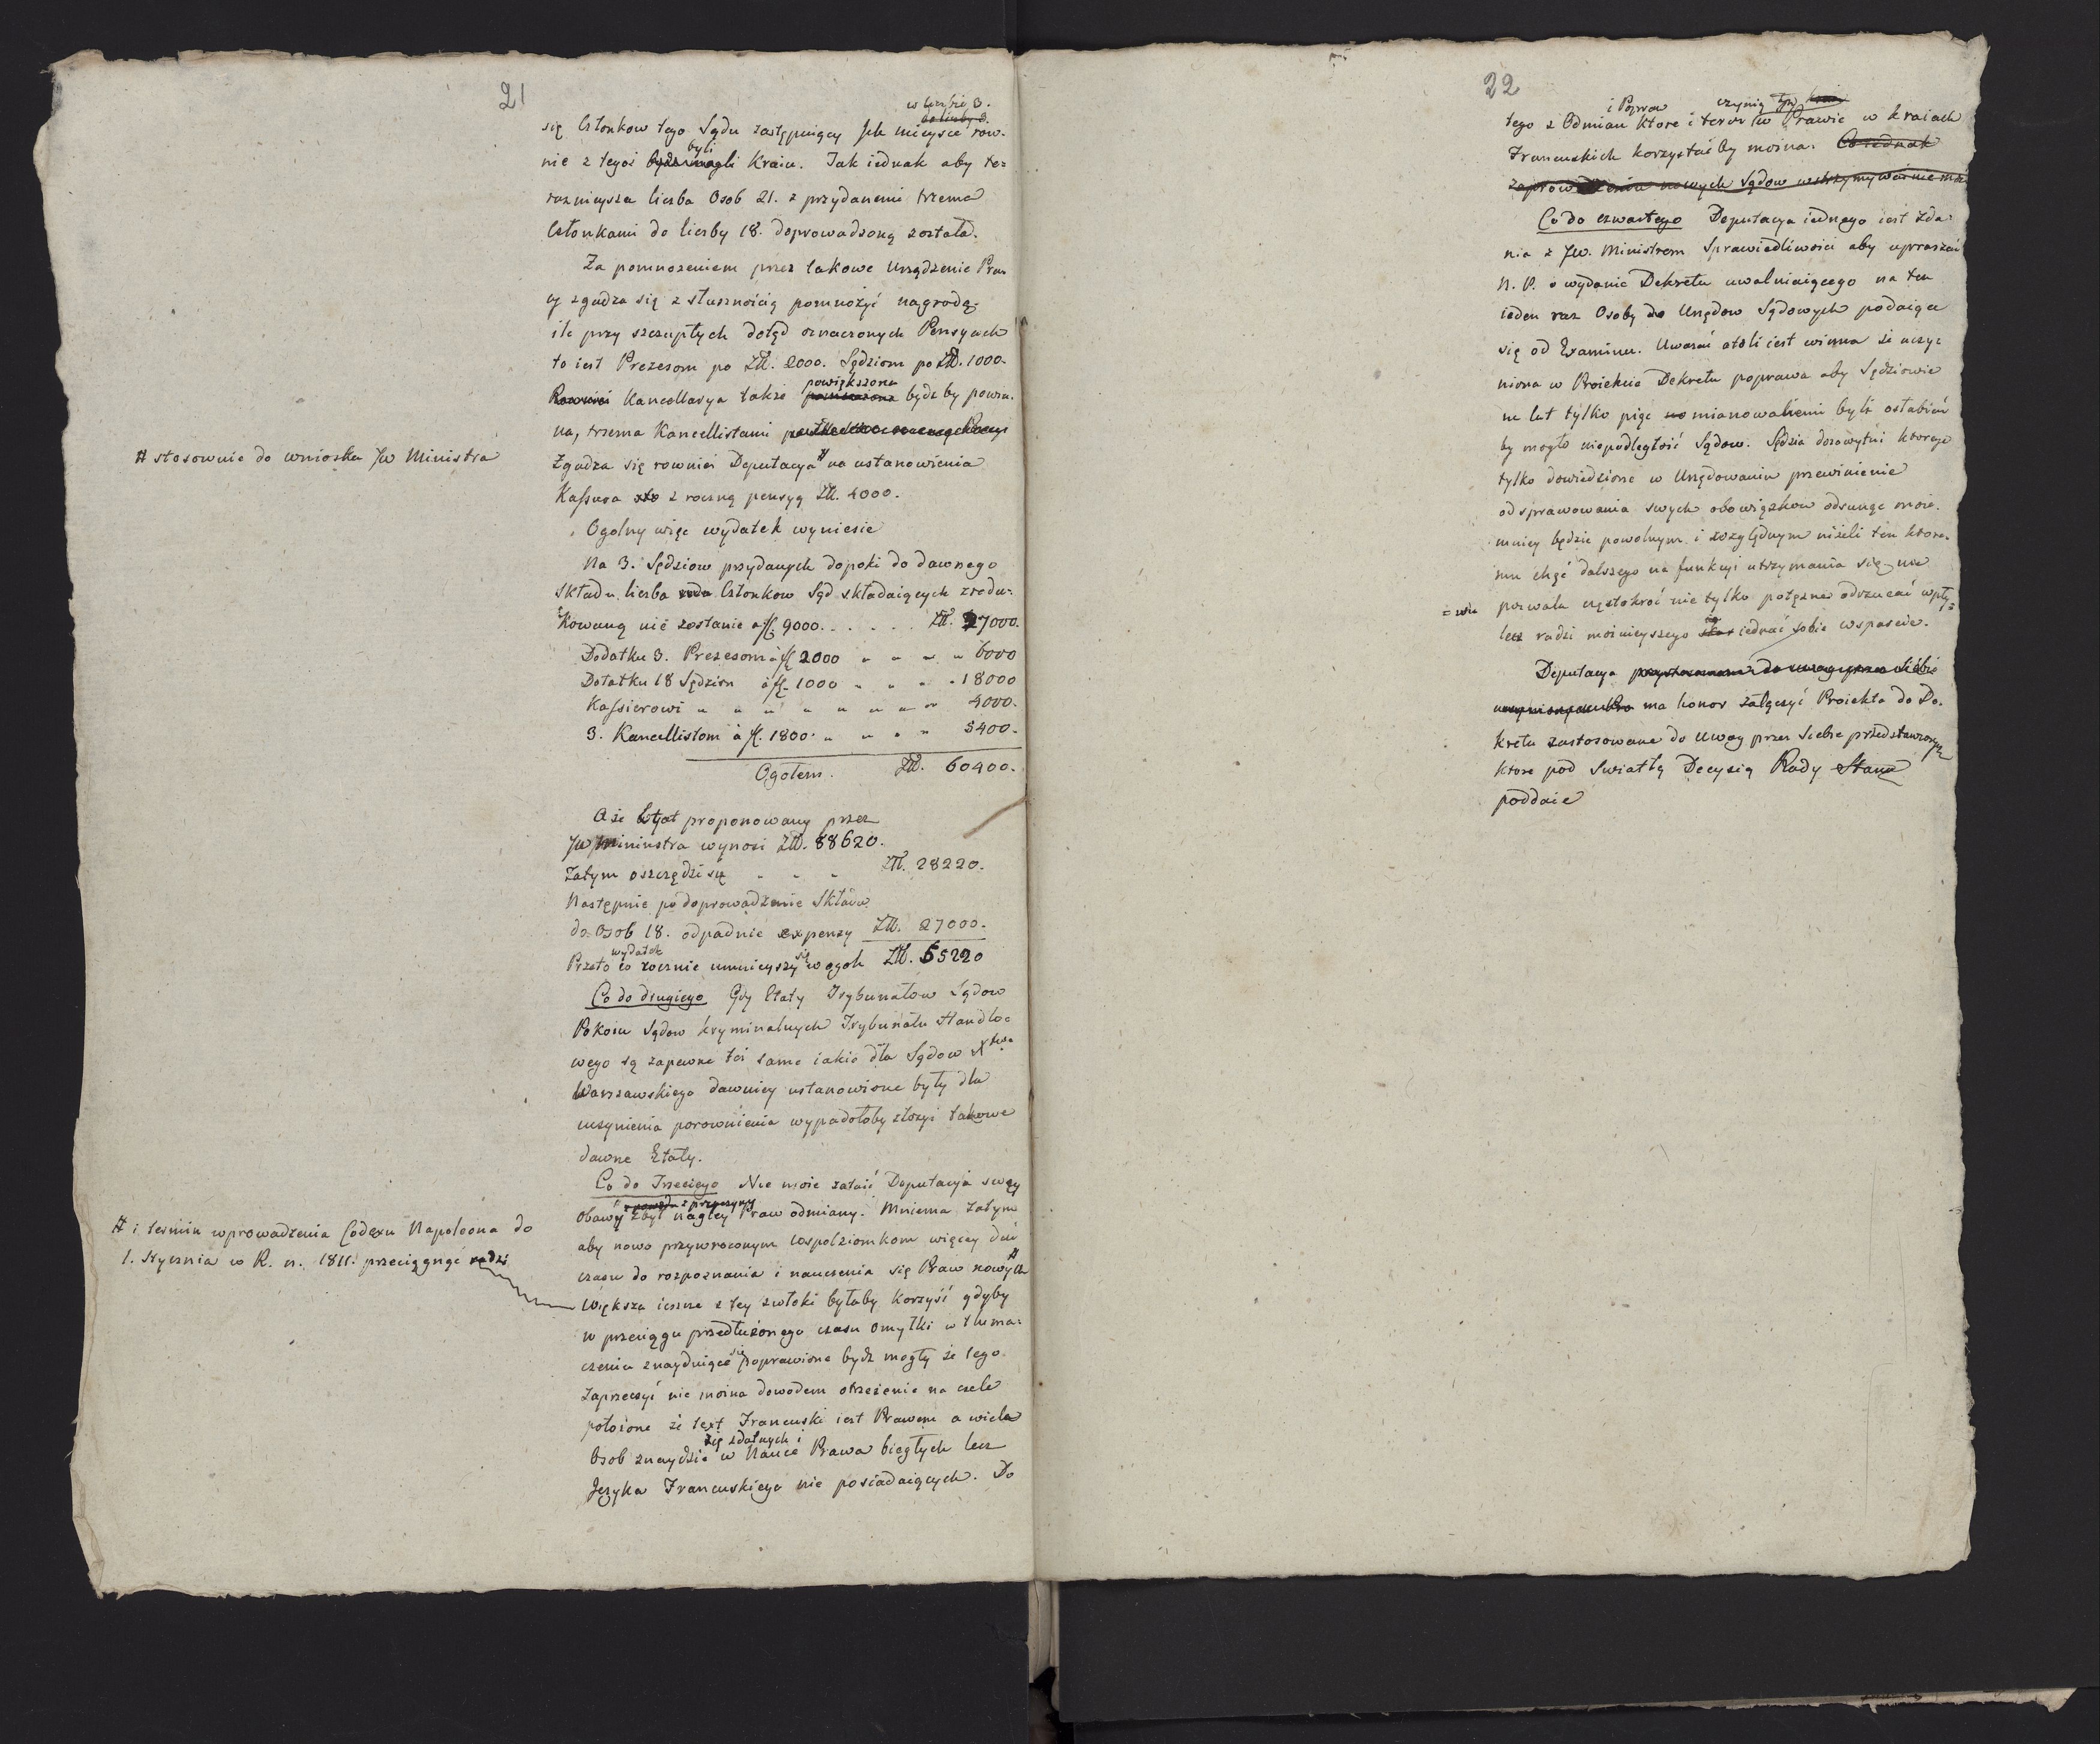 21
w liczbie 3.
do liczby 3.
się Członkow tego Sądu zastępuiący Jch mieysce row-
byli
nie z tegoż bydź mogli Kraiu. Tak iednak aby te-
raznieysza liczba Osob 21. z przydanemi trzema
Członkami do liczby 18. doprowadzoną została.
Za pomnożeniem przez takowe Urządzenie Pra-
cy zgadza się z słusznością pomnożyć nagrodę,
ile przy szczupłych dotąd oznaczonych Pensyach
to iest Prezesom po Złł. 2000. Sędziom po Złł. 1000.
powiększona
Rownież Kancellarya także pomnożona bydź by powin-
na, trzema Kancellistami
# stosownie do wniosku JW Ministra
Zgadza się rownież Deputacya # na ustanowienia
Kassyera z roczną pensyą Złł. 4000.
Ogolny więc wydatek wyniesie
Na 3. Sędziow przydanych dopoki do dawnego
składu liczba Członkow Sąd składaiących zredu-
kowaną nie zostanie a fl. 9000. . . . . . Złł. 27000.
Dodatku 3. Prezesom à fl. 2000 „ „ „ „ 6000
Dotatku 18 Sędziom à fl. 1000 „ „ „ „ 18000
Kassierowi „ „ „ „ „ „ „ „ 4000.
3. Kancellistom à fl. 1800. „ „ „ „ 5400.
Ogołem. Złł. 60400.
A że Etat proponowany przez
JW Mininstra wynosi Złł. 88620.
Zatym oszczędzi się „ „ „ Złł. 28220.
Następnie po doprowadzenie Składu
do Osob 18. odpadnie expensy Złł. 27000.
wydatek
Przeto co rocznie umnieyszy się w ogole Złł. 55220
Co do drugiego Gdy Etaty Trybunałow Sądow
Pokoiu Sądow kryminalnych Trybunału Handlo-
wego są zapewne też same iakie dla Sądow Xtwa
Warszawskiego dawniey ustanowione były dla
uczynienia porownienia wypadołoby złożyć takowe
dawne Etaty.
Co do Trzeciego Nie może zataić Deputacya swey
obawy zbyt nagłey Praw odmiany. Mniema zatym
aby nowo przywroconym wspołziomkom więcey dać
czasu do rozpoznania i nauczenia się Praw nowych #
# i termin wprowadzenia Codexu Napoleona do
1. Stycznia w R. n. 1811. przeciągnąć radzi
Większa ieszcze z tey zwłoki byłaby korzyść gdyby
w przeciągu przedłużonego czasu omyłki w tłuma-
czeniu znayduiące się poprawione bydź mogły że tego
zaprzeczyć nie można dowodem ostrzeżenie na czele
położone że text Francuski iest Prawem a wiele
się zdatnych i
Osob znaydzie w Nauce Prawa biegłych lecz
Języka Francuskiego nie posiadaiących. Do
22
i Popraw czynią
tego z Odmian ktore i teraz w Prawie w kraiach
Francuskich korzystać by można. Co iednak
zaprowadzenia nowych Sądow wstrzymywać nie moż
Co do czwartego Deputacya iednego iest zda-
nia z JW. Ministrem Sprawiedliwości aby upraszać
N. P. o wydanie Dekretu uwalniaiącego na ten
ieden raz Osoby do Urzędow Sądowych podaiące
się od Examinu. Uważać atoli iest winna że uczy-
niona w Proiekcie Dekretu poprawa aby Sędziowie
na lat tylko pięć mianowaliemi byli osłabiać
by mogło niepodległość Sądow. Sędzia dożywotni ktorego
tylko dowiedzione w Urzędowaniu przewinienie
od sprawowania swych obowiązkow odsunąć może.
mniey będzie powolnym i względnym niżeli ten ktore-
mu chęć dalszego na funkcyi utrzymania się nie
pozwala częstokroć nie tylko potężne odrzucać wpły-
= wu
lecz radzi możnieyszego iednać sobie wsparcie.
Deputacya przystosowane do uwag przez Siebie
ma honor załączyć Proiekta do De-
kretu zastosowane do Uwag przez Siebie przedstawionych
ktore pod Swiatłą Decyzią Rady Stanu
poddaie